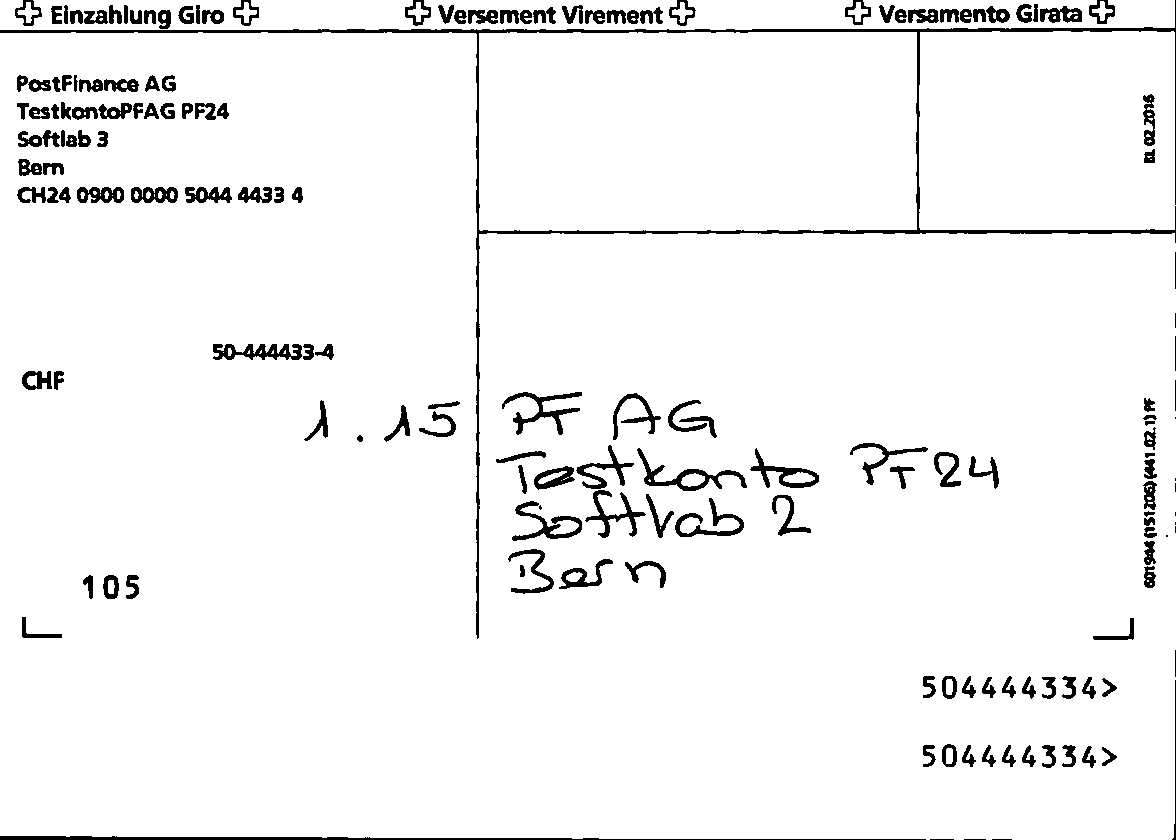 Einzahlung Giro
Versement Virement
Versamento Girata
PostFinance AG
TestkontoPFAG PF24
Softlab 3
Bern
CH24 0900 0000 5044 4433 4
EL 02.2016
50-444433-4
CHF
1.15
PF AG
Testkonto PF24
Softlab 2
Bern
105
601944 (151206) (441.02.1) PF
504444334>
504444334>